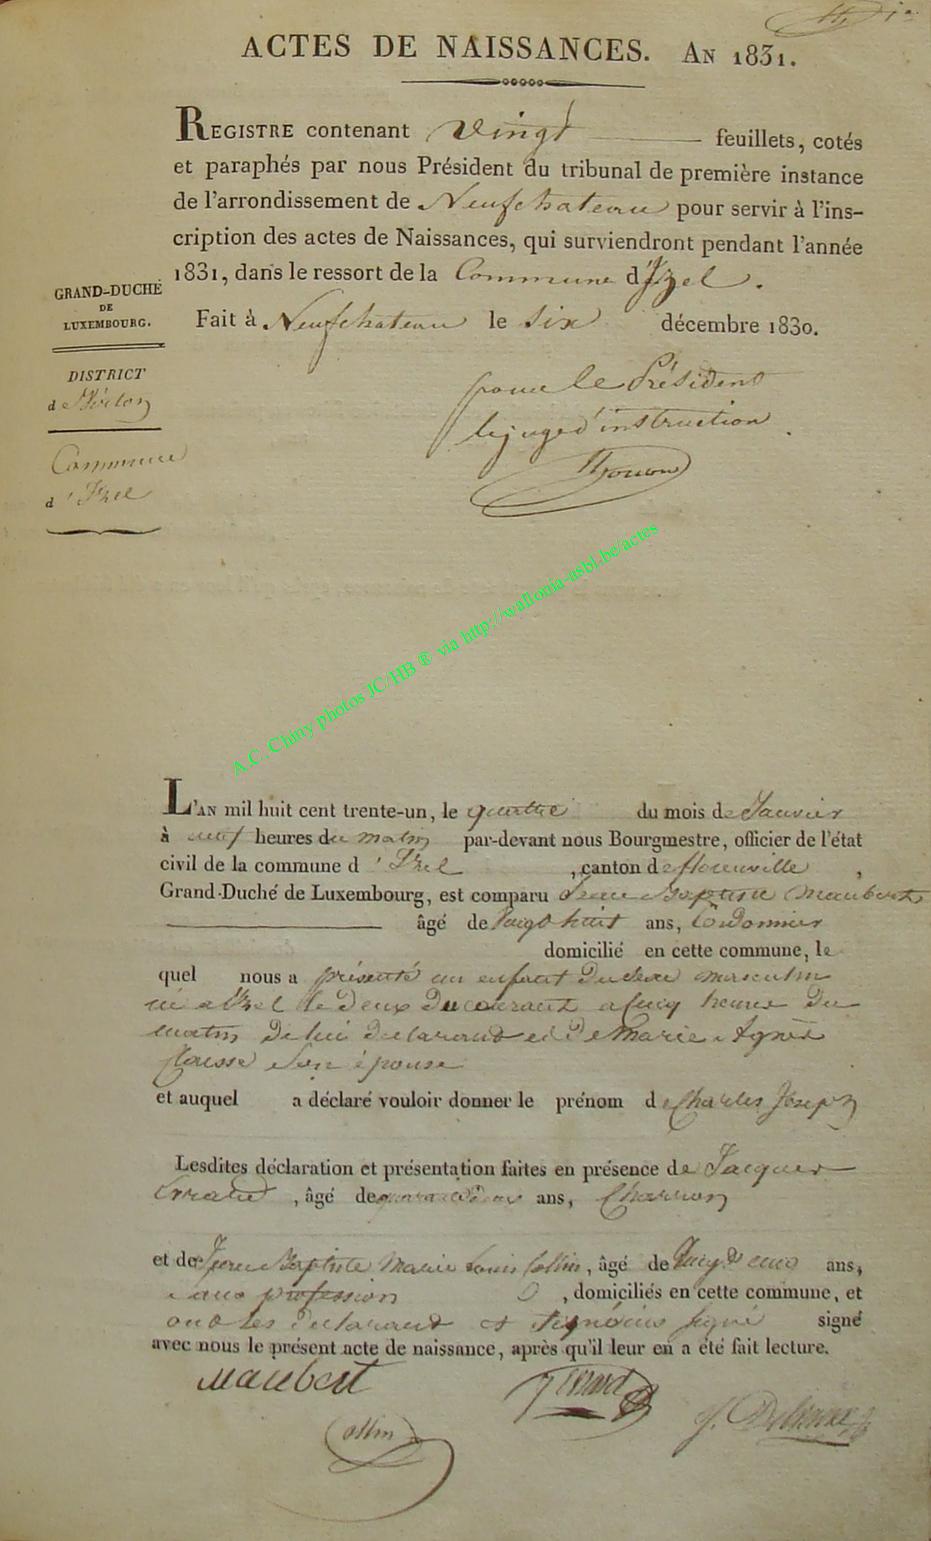 ACTES DE NAISSANCES. AN 1831.
REGISTRE contenant Vingt feuillets, cotés
et paraphés par nous Président du tribunal de première instance
de l'arrondissement de Neufchateau pour servir à l'ins-
cription des actes de Naissances, qui surviendront pendant l'année
1831, dans le ressort de la Commune d'Izel.
Fait à Neufchateau le six décembre 1830.
GRAND-DUCHÉ
DE
LUXEMBOURG.
DISTRICT
de Virton
Commune
d'Izel
pour le Président
le juge d'instruction
A.C. Chiny photos JC/HB ® via http://wallonia-asbl.be/actes
L'AN mil huit cent trente-un, le quatre du mois de Janvier
à neuf heures du matin par-devant nous Bourgmestre, officier de l'état
civil de la commune d'Izel, canton de florenville,
Grand-Duché de Luxembourg, est comparu Jean Baptiste Maubert
âgé de vingt huit ans, Cordonnier
domicilié en cette commune, le
quel nous a présenté un enfant du sexe masculin
né a Izel le deux du courant a cinq heures du
matin de lui declarant et de Marie Agnès
son épouse
et auquel a déclaré vouloir donner le prénom de Charles Joseph
Lesdites déclaration et présentation faites en présence de Jacques
Errard, âgé de ans, Charron
et de Jean Baptiste Marie Louis Collin, âgé de vingt deux ans,
sans profession, domiciliés en cette commune, et
ont les declarant et témoins signé signé
avec nous le présent acte de naissance, après qu'il leur en a été fait lecture.
Maubert
J Errard
Collin